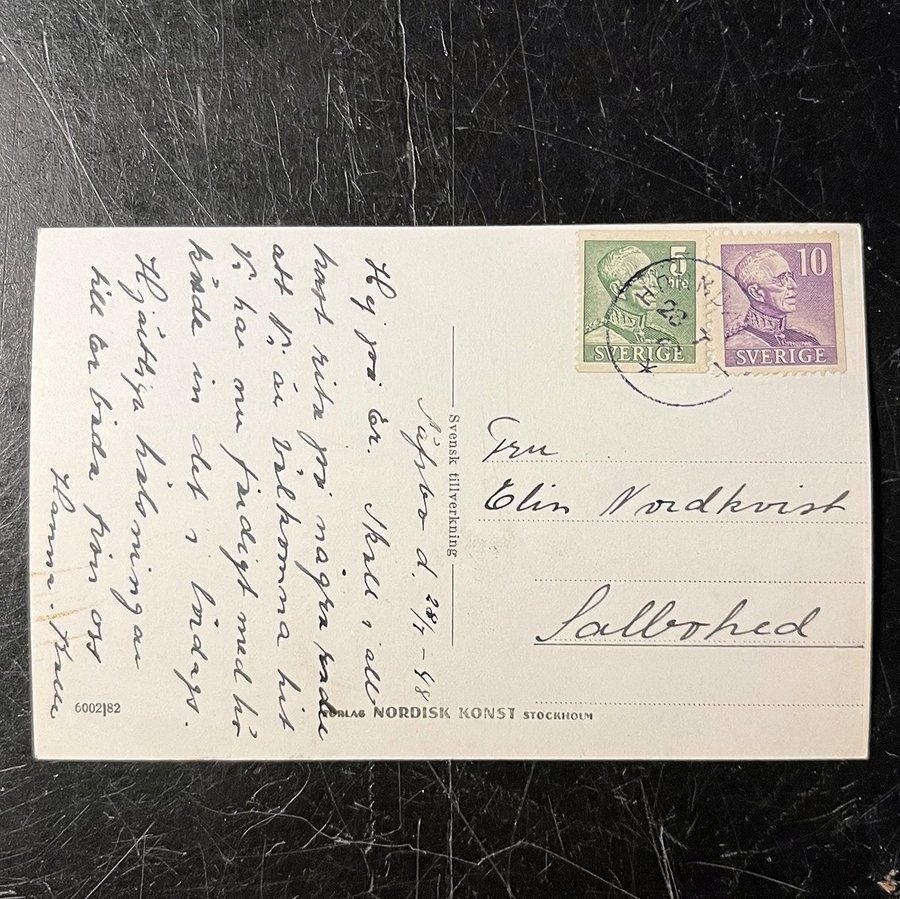 Näfsbo d. 28/7 - 48
Hej på Er. Skall i all
hast rita på några rader
att Vi är Välkomna hit
Vi har nu färdigt med hö
körde in det i lördags.
Hjärtliga hälsningar
till Er båda från oss
Hanna.
Svensk tillverkning
6002|82
FÖRLAG NORDISK KONST STOCKHOLM
5
öre
SVERIGE
10
SVERIGE
28
Fru
Elin Nordkvist
Salbohed